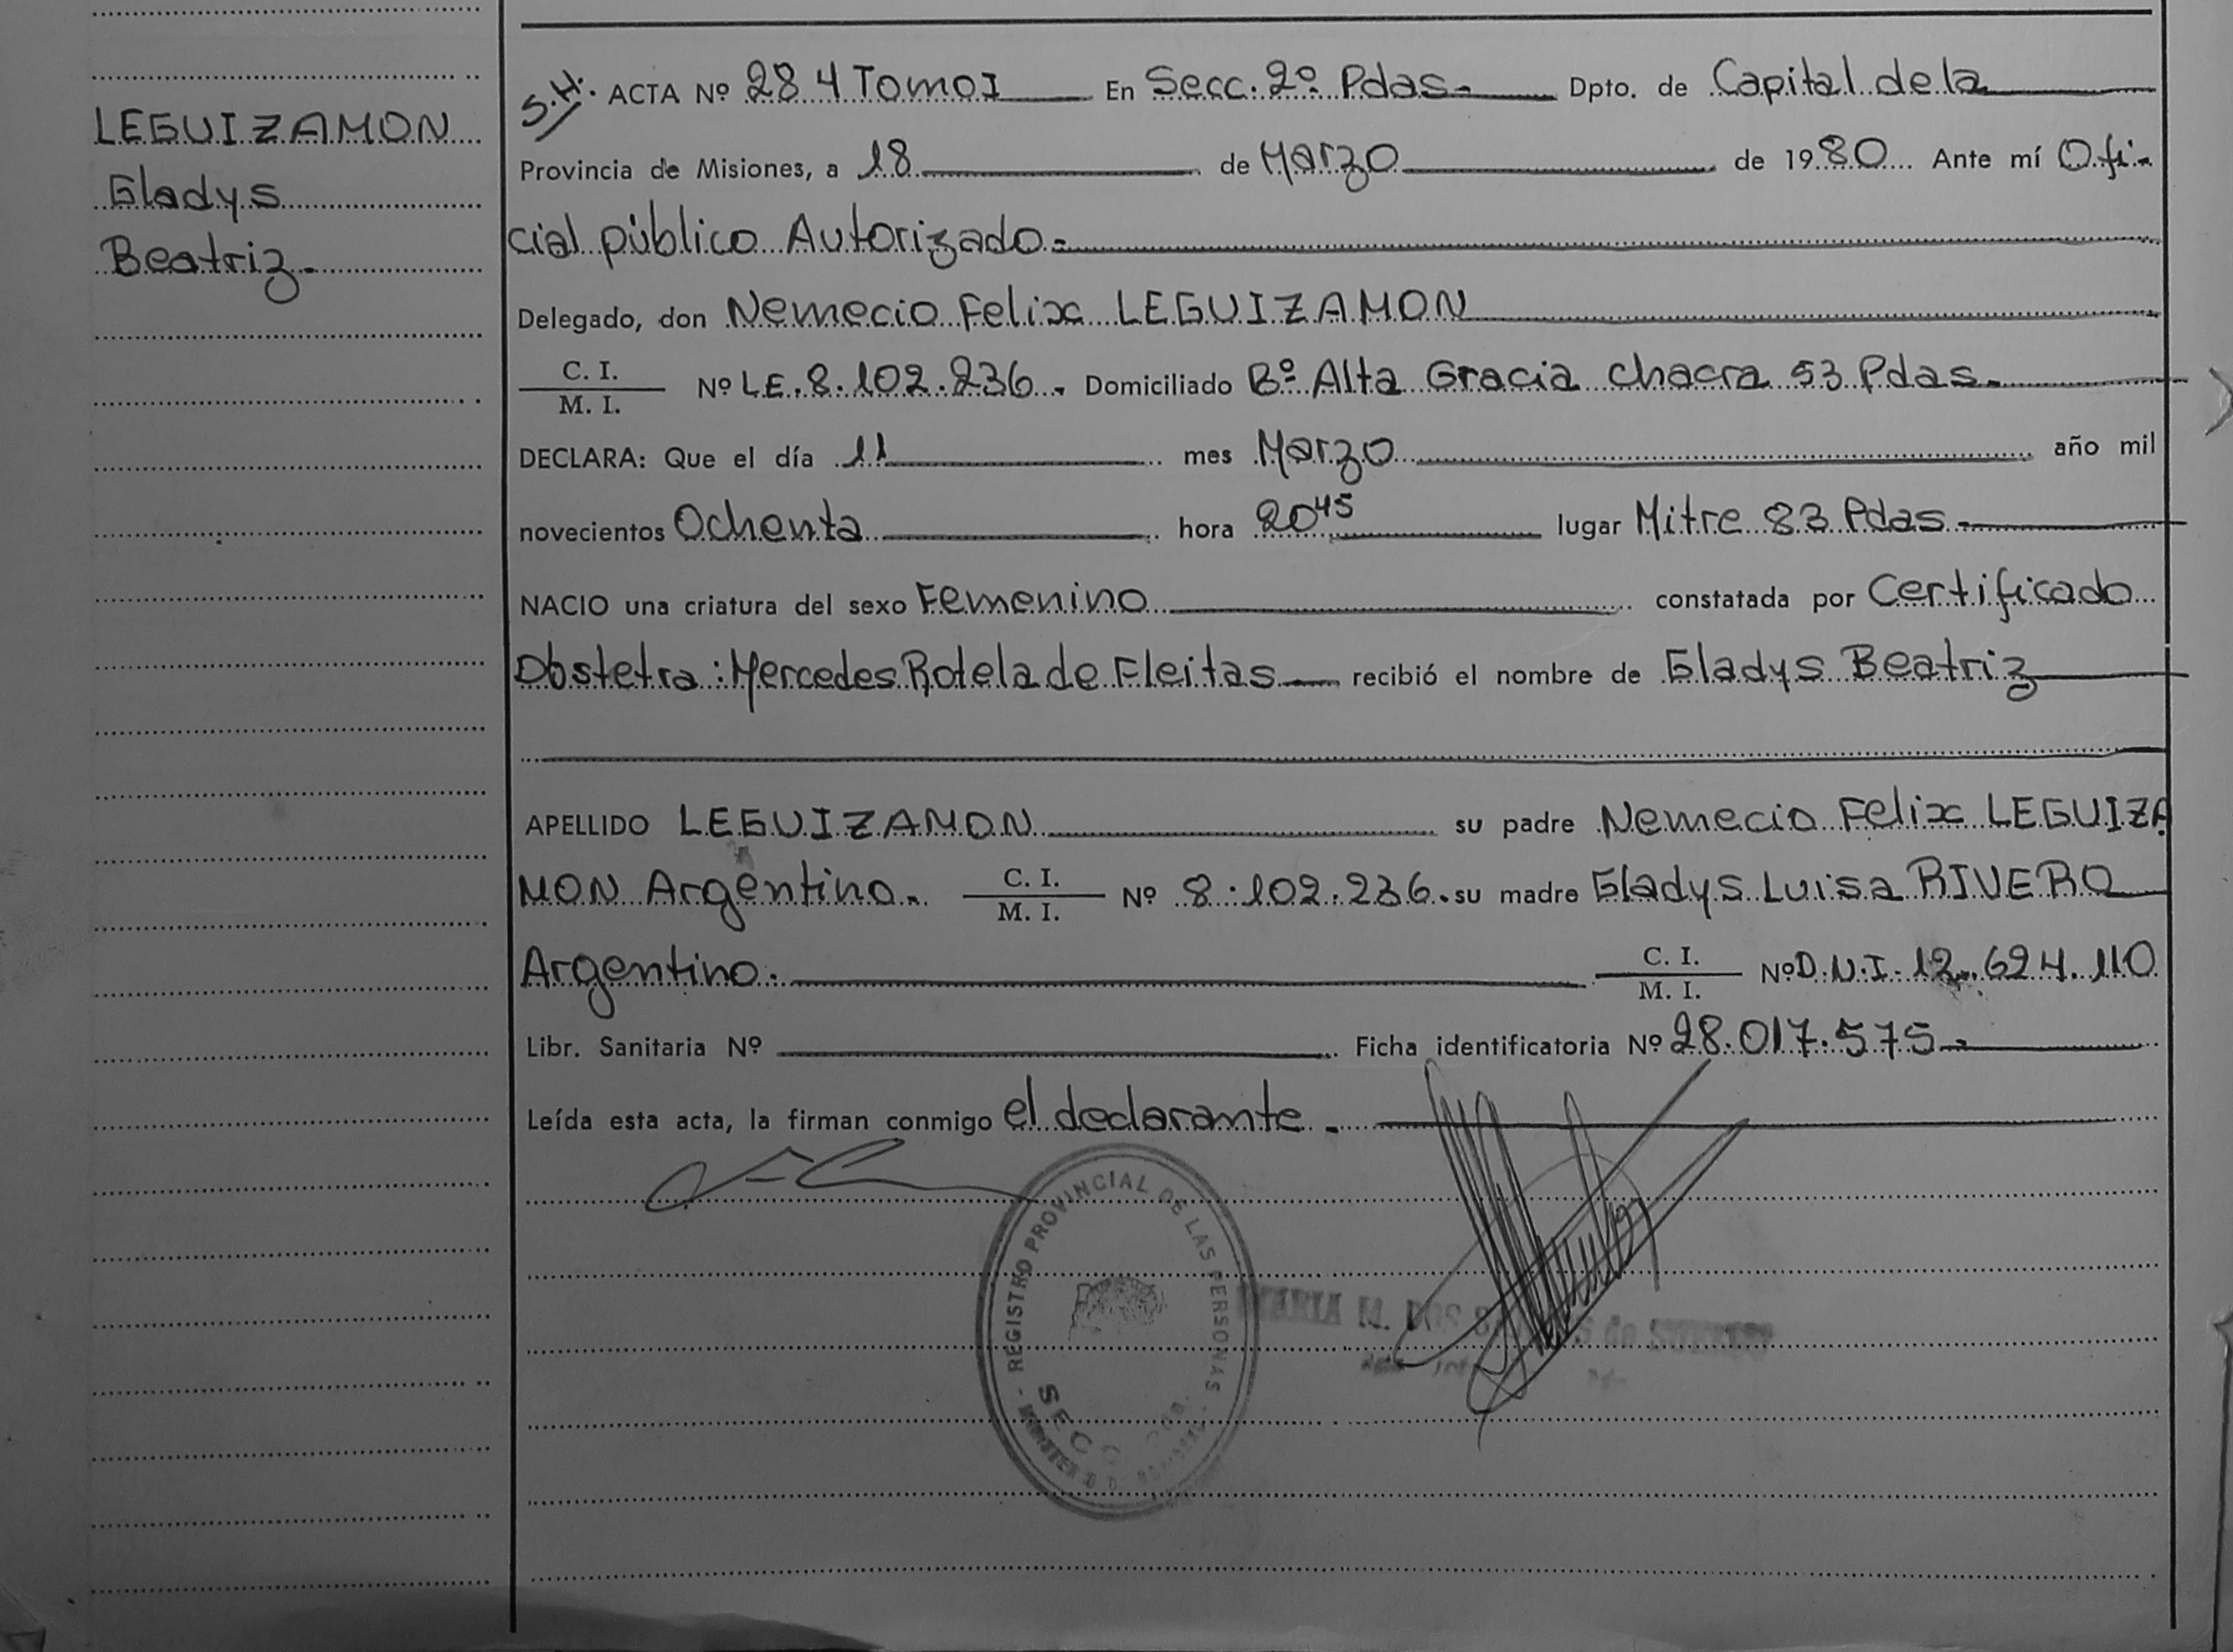 LEGUIZAMON
Gladys
Beatriz.
S.H. ACTA Nº 284 Tomo I En Secc. 2º Pdas.- Dpto. de Capital de la
Provincia de Misiones, a 18 de Marzo de 1980 Ante mí Ofi-
cial público Autorizado.-
Delegado, don Nemecio Felix LEGUIZAMON
C. I.
M. I. Nº LE. 8.102.236. Domiciliado Bº Alta Gracia Chacra 53 Pdas.
DECLARA: Que el día 11 mes Marzo año mil
novecientos Ochenta hora 20 45 lugar Mitre 83 Pdas
NACIO una criatura del sexo Femenino constatada por Certificado
Obstetra: Mercedes Rotela de Fleitas recibió el nombre de Gladys Beatriz
APELLIDO LEGUIZAMON su padre Nemecio Felix LEGUIZA
MON Argentino. C. I.
M. I. Nº 8.102.236. su madre Gladys Luisa RIVERO
Argentino. C. I.
M. I. Nº D.N.I. 12.624.110
Libr. Sanitaria Nº Ficha identificatoria Nº 28.017.575
Leída esta acta, la firman conmigo el declarante.
REGISTRO PROVINCIAL DE LAS PERSONAS
SECC
MARIA M. DOS